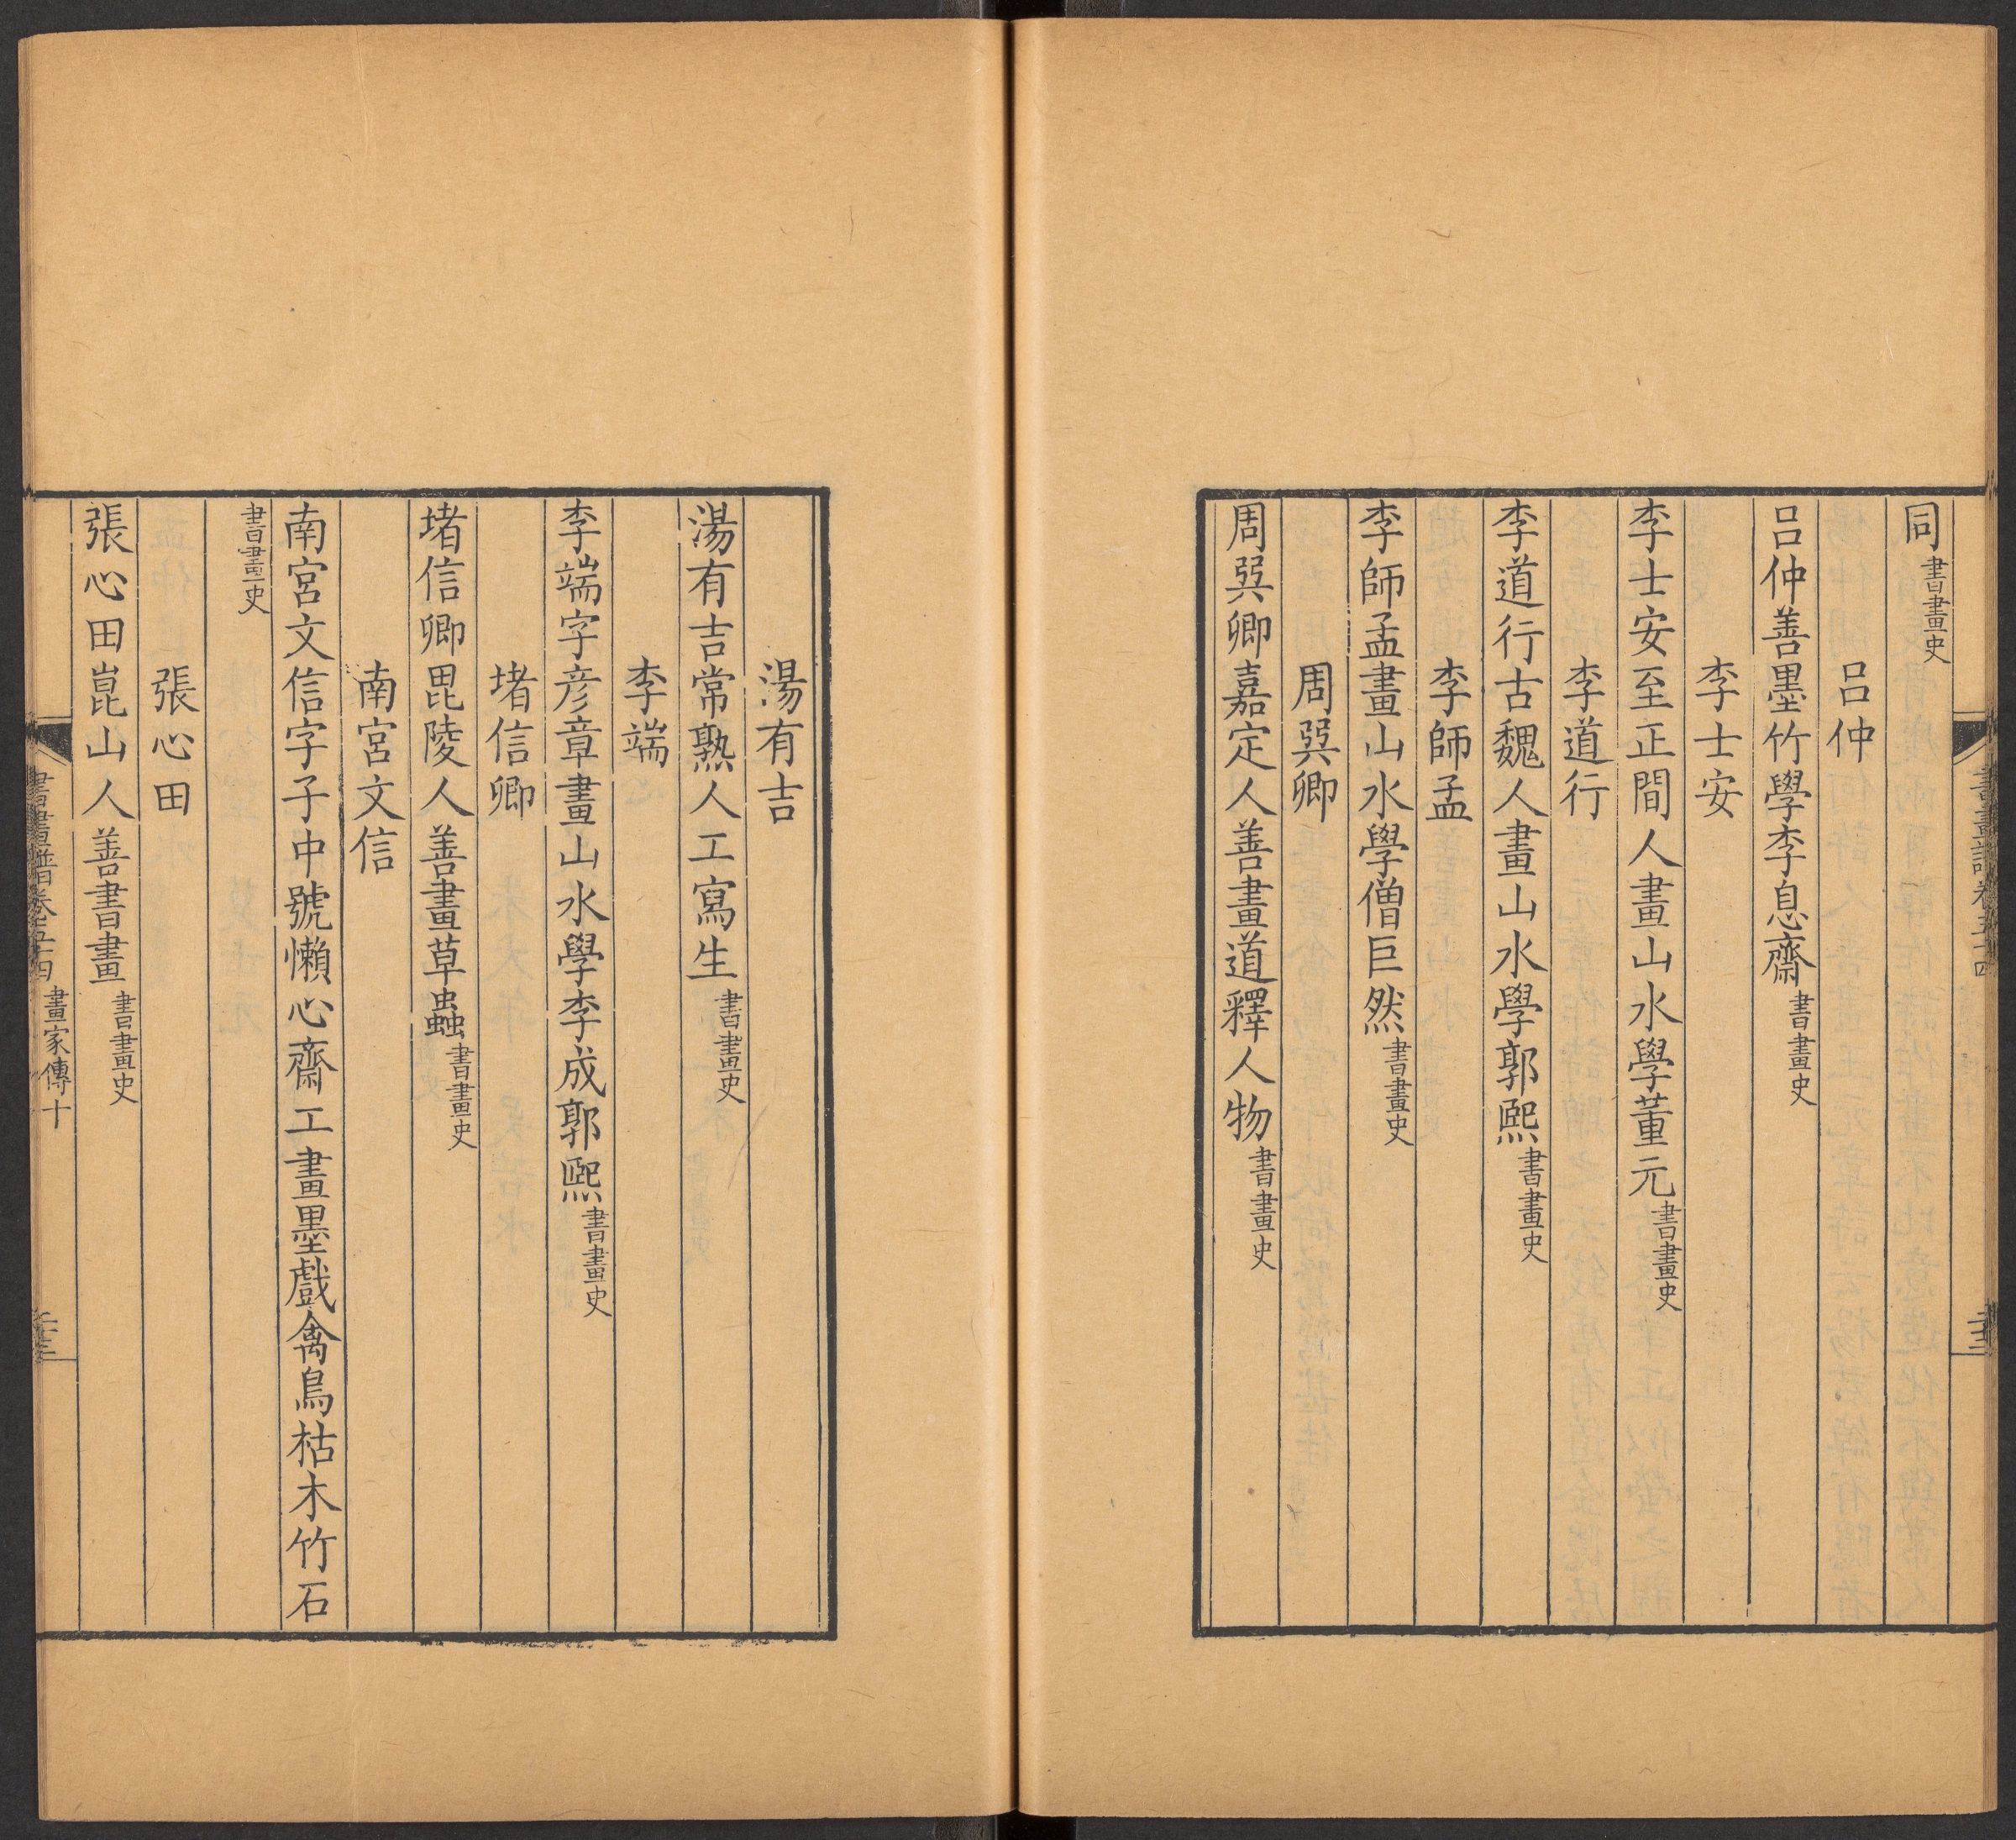 同書畫史
呂仲
呂仲善墨竹學李息齋書畫史
李士安
李士安至正間人畫山水學董元書畫史
李道行
李道行古魏人畫山水學郭熙書畫史
李師孟
李師孟畫山水學僧巨然書畫史
周㢲卿
周㢲卿嘉定人善畫道釋人物書畫史
湯有吉
湯有吉常熟人工寫生書畫史
李端
李端字彥章畫山水學李成郭熙書畫史
堵信卿
堵信卿毘陵人善畫草蟲書畫史
南宮文信
南宮文信字子中號懶心齋工畫墨戲禽鳥枯木竹石
書畫史
張心田
張心田崑山人善書畫書畫史
書畫譜卷五十四 畫家傳十